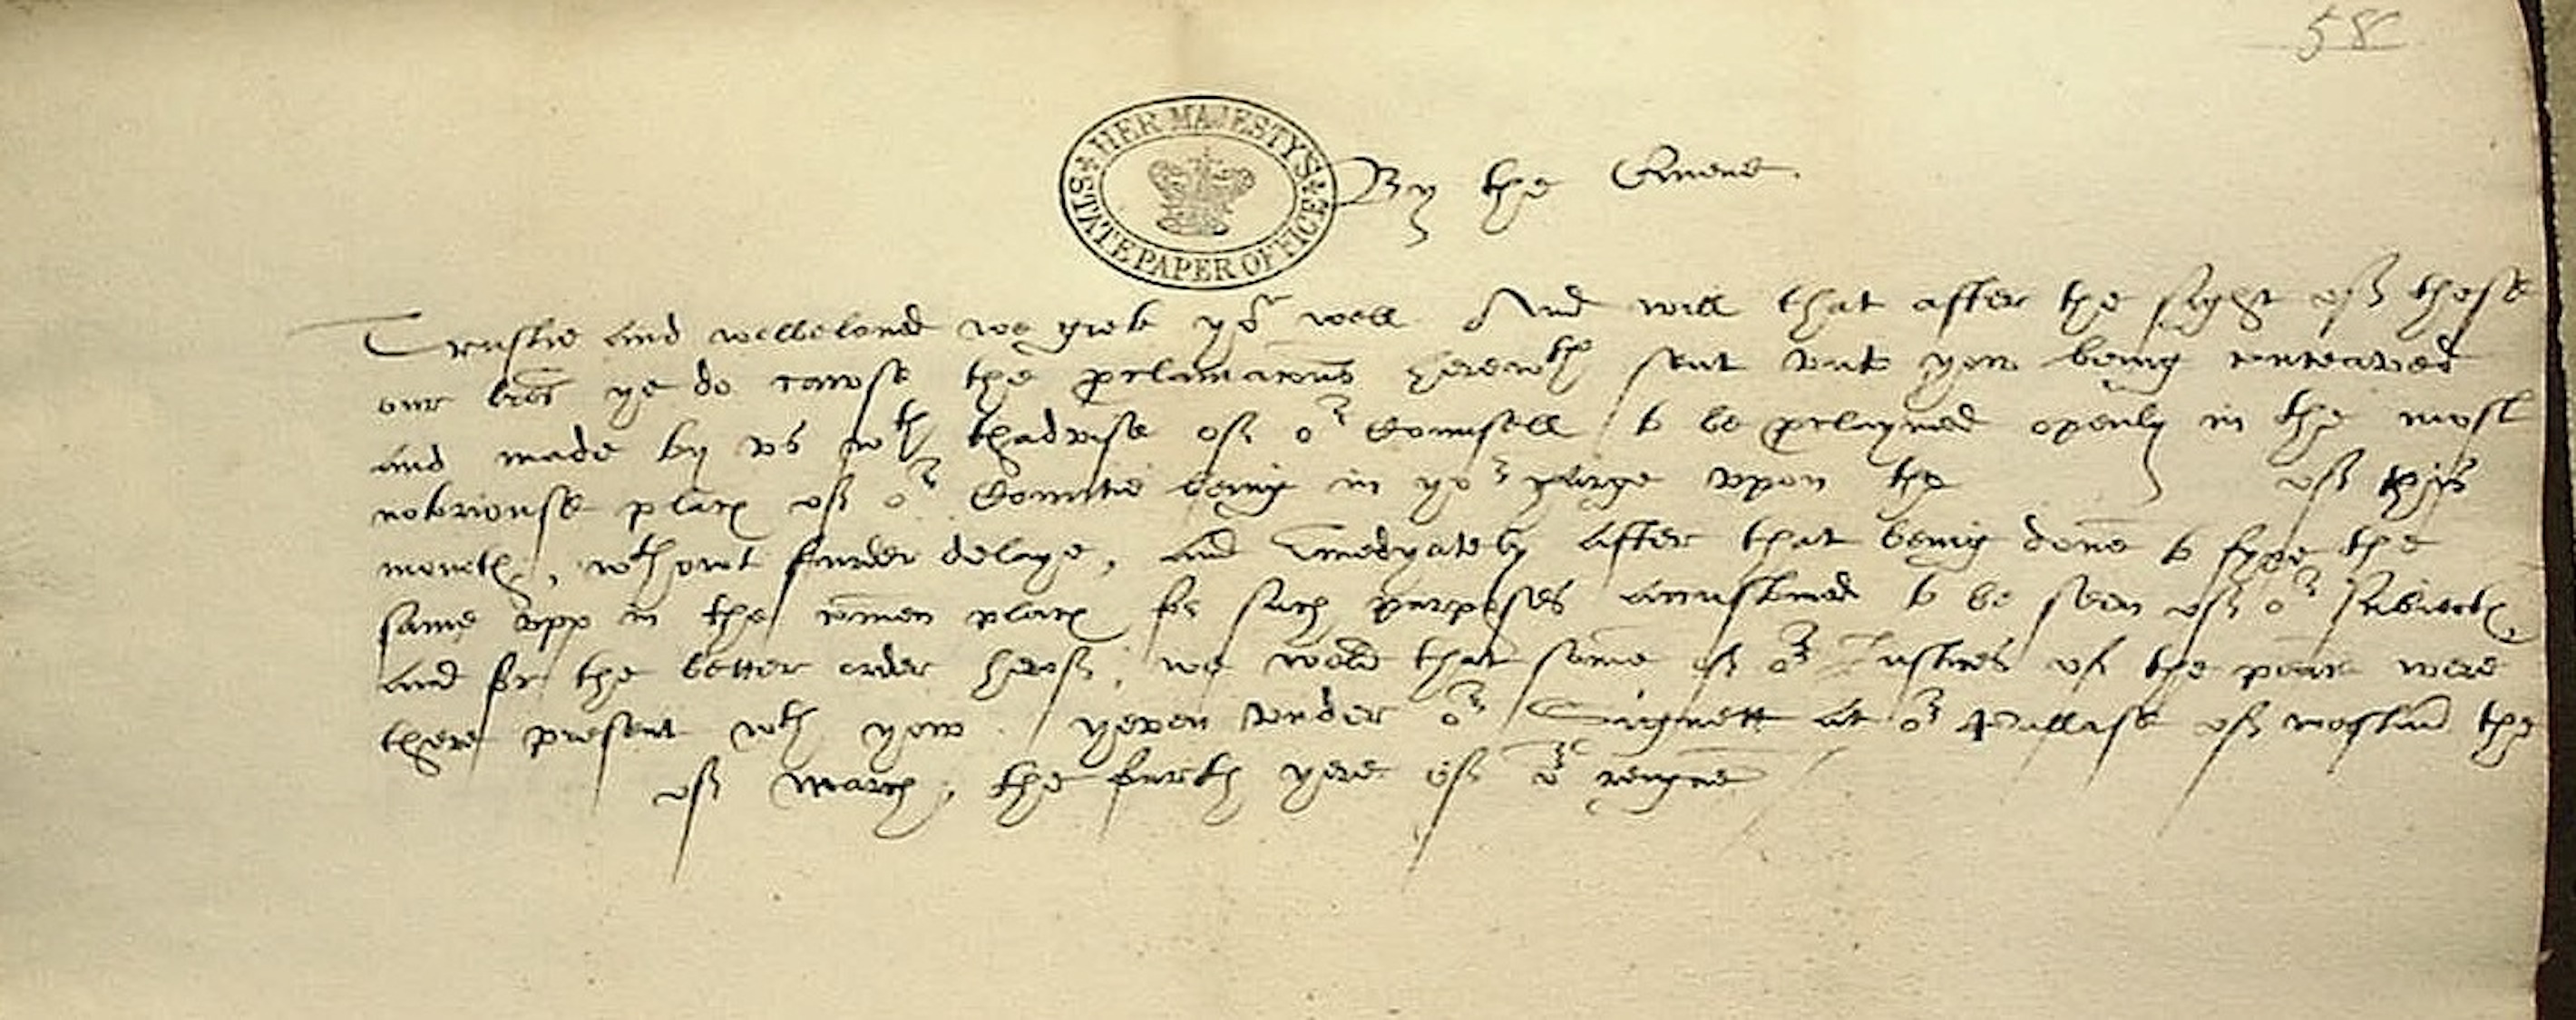 58
HER MAJESTY'S STATE PAPER OFFICE
By the Quene.
Trustie and welbeloued we grete yor well And will that after the sight of these
our lres ye do cawse the pclamacons herewth sent vnto yow being conceaved
and made by vs wth thadvise of or Counsell to be pclaymed openly in the most
notoriouse place of or Countie being in yor charge vpon the of this
moneth, wthowt furder delaye, and Imedyately after that being done to fyxe the
same vpp in the comen place for such purposes accustomed to be seen of or subiects,
And for the better order herof, we wold that some of or Iustices of the peace were
there present wth yow. yeven vnder or Signett at or Pallace of westm the
of march, the fourth yere of or reigne